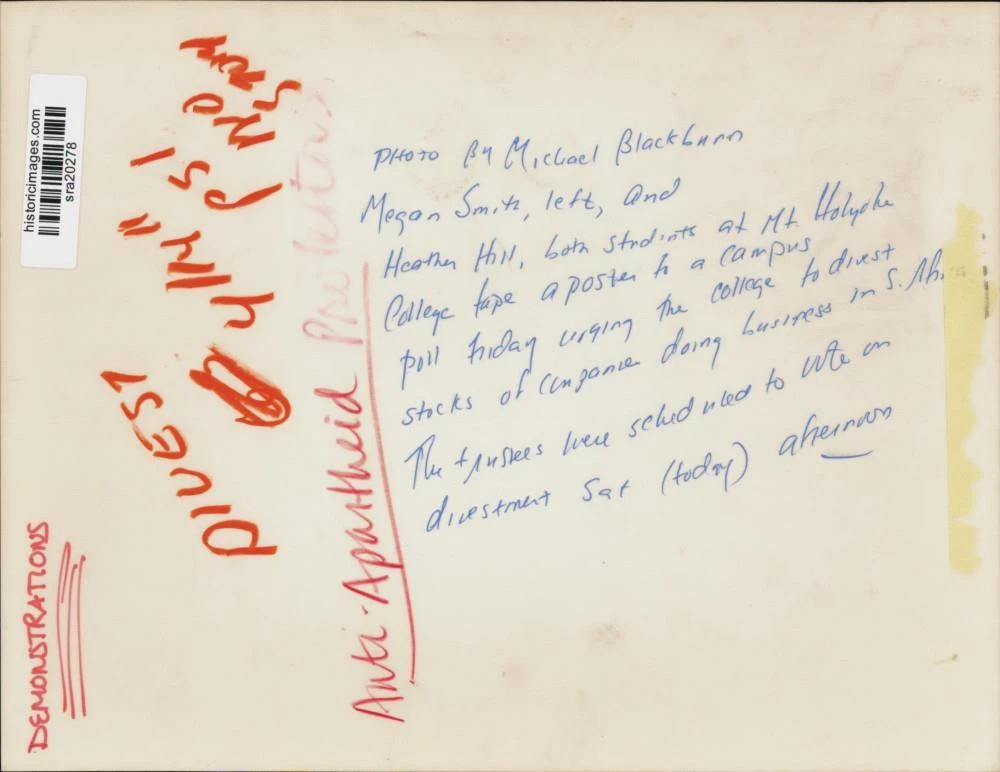 historicimages.com
sra20278
DEMONSTRATIONS
DIVEST
4 11/4"
Anti-Apartheid Protestors
Photo By Michael Blackburn
Megan Smith, left, and
Heather Hill, both students at Mt. Holyoke
College tape a poster to a campus
poll Friday urging the college to divest
stocks of companies doing business in S. Afr.
The trustees were scheduled to vote on
divestment Sat (today) afternoon